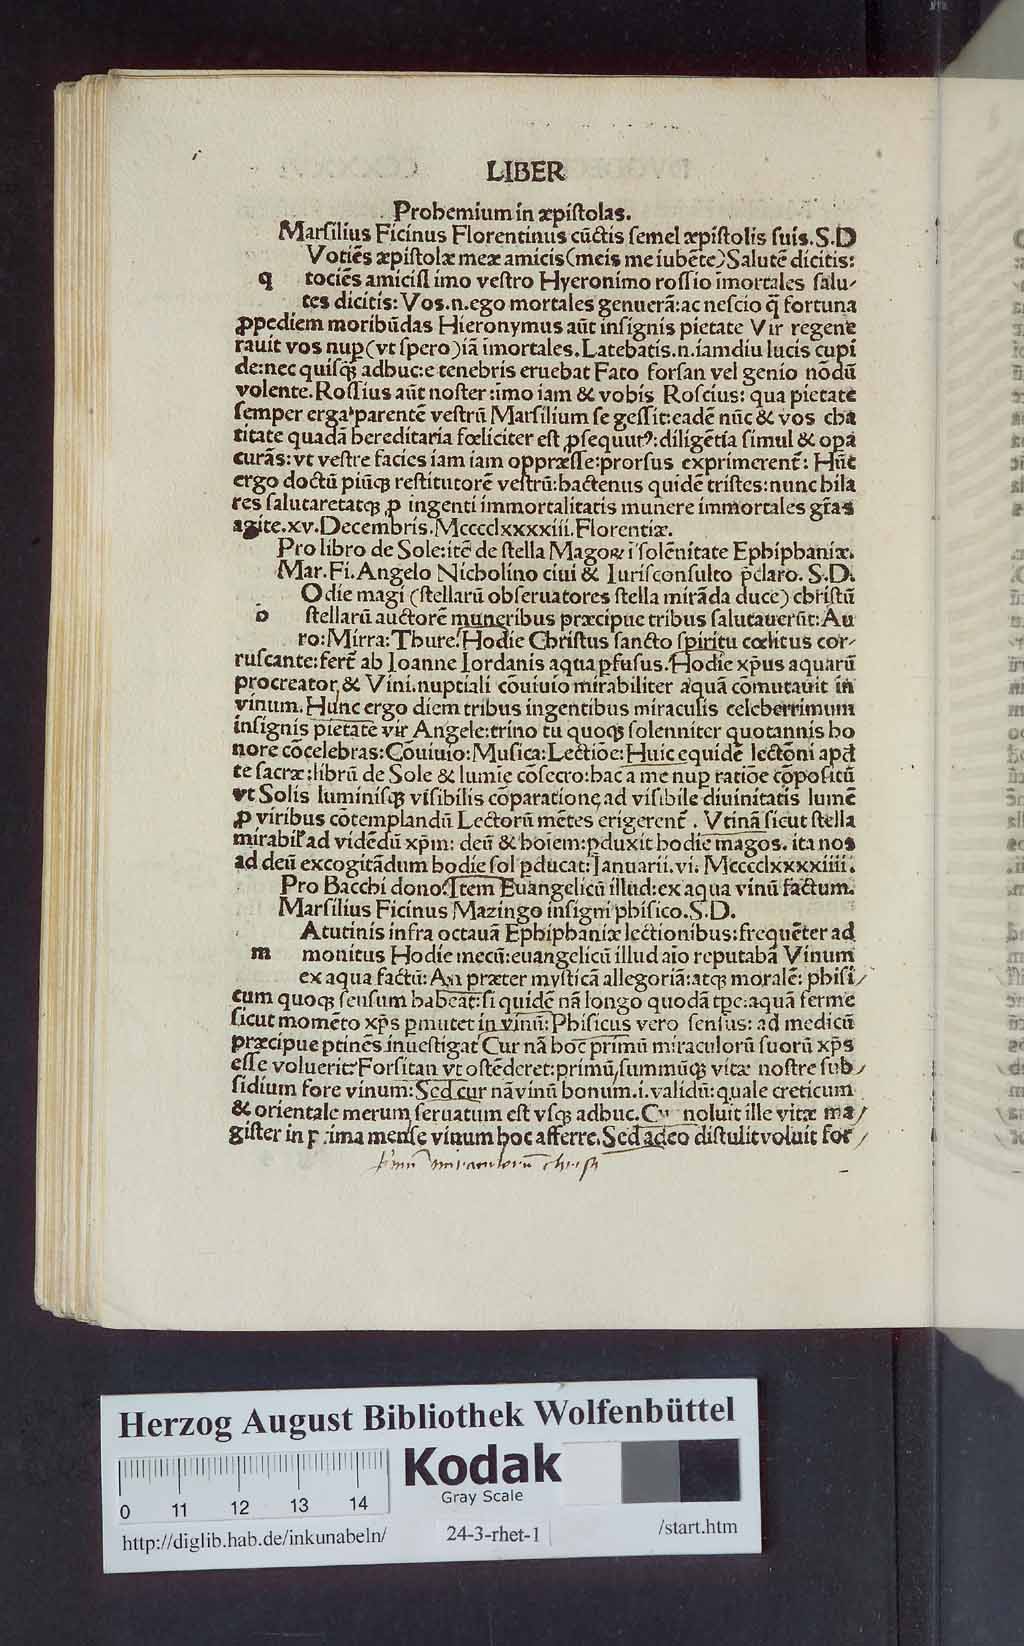 LIBER
Prohemium in æpistolas.
Marsilius Ficinus Florentinus cūctis semel æpistolis suis. S.D
Votiēs æpistolæ meæ amicis (meis me iubēte) Salutē dicitis:
q tociēs amicisſ imo vestro Hyeronimo rossio imortales salu-
tes dicitis: Vos.n.ego mortales genuerā: ac nescio q̄ fortuna
ꝓpediem moribūdas Hieronymus aūt insignis pietate Vir regene
rauit vos nuꝑ (vt spero) iā imortales. Latebatis.n.iamdiu lucis cupi
de: nec quisq̄ʒ adhuc: e tenebris eruebat Fato forsan vel genio nōdū
volente. Rossius aūt noster: imo iam & vobis Roscius: qua pietate
semper erga parentē vestrū Marsilium se gessit: eadē nūc & vos cha
titate quadā hereditaria fœliciter est ꝓsequutꝰ: diligētia simul & opa
curās: vt vestre facies iam iam oppræsse: prorsus exprimerent̄: Hūc
ergo doctū piūqʒ restitutorē vestrū: hactenus quidē tristes: nunc hila
res salutaretatqʒ ꝓ ingenti immortalitatis munere immortales gr̄as
agite. xv. Decembris. Mccccلxxxxiii. Florentiæ.
Pro libro de Sole: itē de stella Magoꝝ i solēnitate Ephiphaniæ.
Mar. Fi. Angelo Nicholino ciui & Iurisconsulto p̄claro. S.D.
Odie magi (stellarū obseruatores stella mirāda duce) christū
o stellarū auctorē muneribus præcipue tribus salutauerūt: Au
ro: Mirra: Thure. Hodie Christus sancto spiritu cœlitus cor-
ruscante: fert̄ ab Ioanne Iordanis aqua ꝑfusus. Hodie xp̄us aquarū
procreator & Vini. nuptiali cōuiuio mirabiliter aquā cōmutauit in
vinum. Hunc ergo diem tribus ingentibus miraculis celeberrimum
insignis pietate vir Angele: trino tu quoqʒ solenniter quotannis ho
nore cōcelebras: Cōuiuio: Musica: Lectiōe: Huic equidē lectōni apd
te sacræ: librū de Sole & lumīe cōsecro: hac a me nuꝑ ratiōe cōpositū
vt Solis luminisqʒ visibilis cōparatione ad visibile diuinitatis lumē
ꝓ viribus cōtemplandū Lectorū mētes erigerent̄. Vtinā sicut stella
mirabil' ad vidēdū xp̄m: deū & hoīem: ꝓduxit hodie magos. ita nos
ad deū excogitādum hodie sol ꝓducat: Ianuarii. vi. Mcccclxxxxiiii.
Pro Bacchi dono. Item Euangelicū illud: ex aqua vinū factum.
Marsilius Ficinus Mazingo insigni phisico. S.D.
Atutinis infra octauā Ephiphaniæ lectionibus: frequēter ad
m monitus Hodie mecū: euangelicū illud aīo reputabā Vinum
ex aqua factū: An præter mysticā allegoriā: atqʒ moralē: phisi-
cum quoqʒ sensum habeat: si quidē nā longo quodā tp̄e: aquā ferme
sicut momēto xp̄s ꝑmutet in vinū: Phisicus vero sensus: ad medicū
præcipue ptinēs inuestigat Cur nā hoc primū miraculorū suorū xp̄s
esse voluerit: Forsitan vt ostēderet: primū, summūqʒ vitæ nostre sub-
sidium fore vinum: Sed cur nā vinū bonum. i. validū: quale creticum
& orientale merum seruatum est vsqʒ adhuc. Cur noluit ille vitæ ma-
gister in prima mense vinum hoc afferre. Sed adeo distulit voluit for-
p̄mū miraculorū christi
Herzog August Bibliothek Wolfenbüttel
0 11 12 13 14
Kodak
Gray Scale
http://diglib.hab.de/inkunabeln/ 24-3-rhet-1 /start.htm